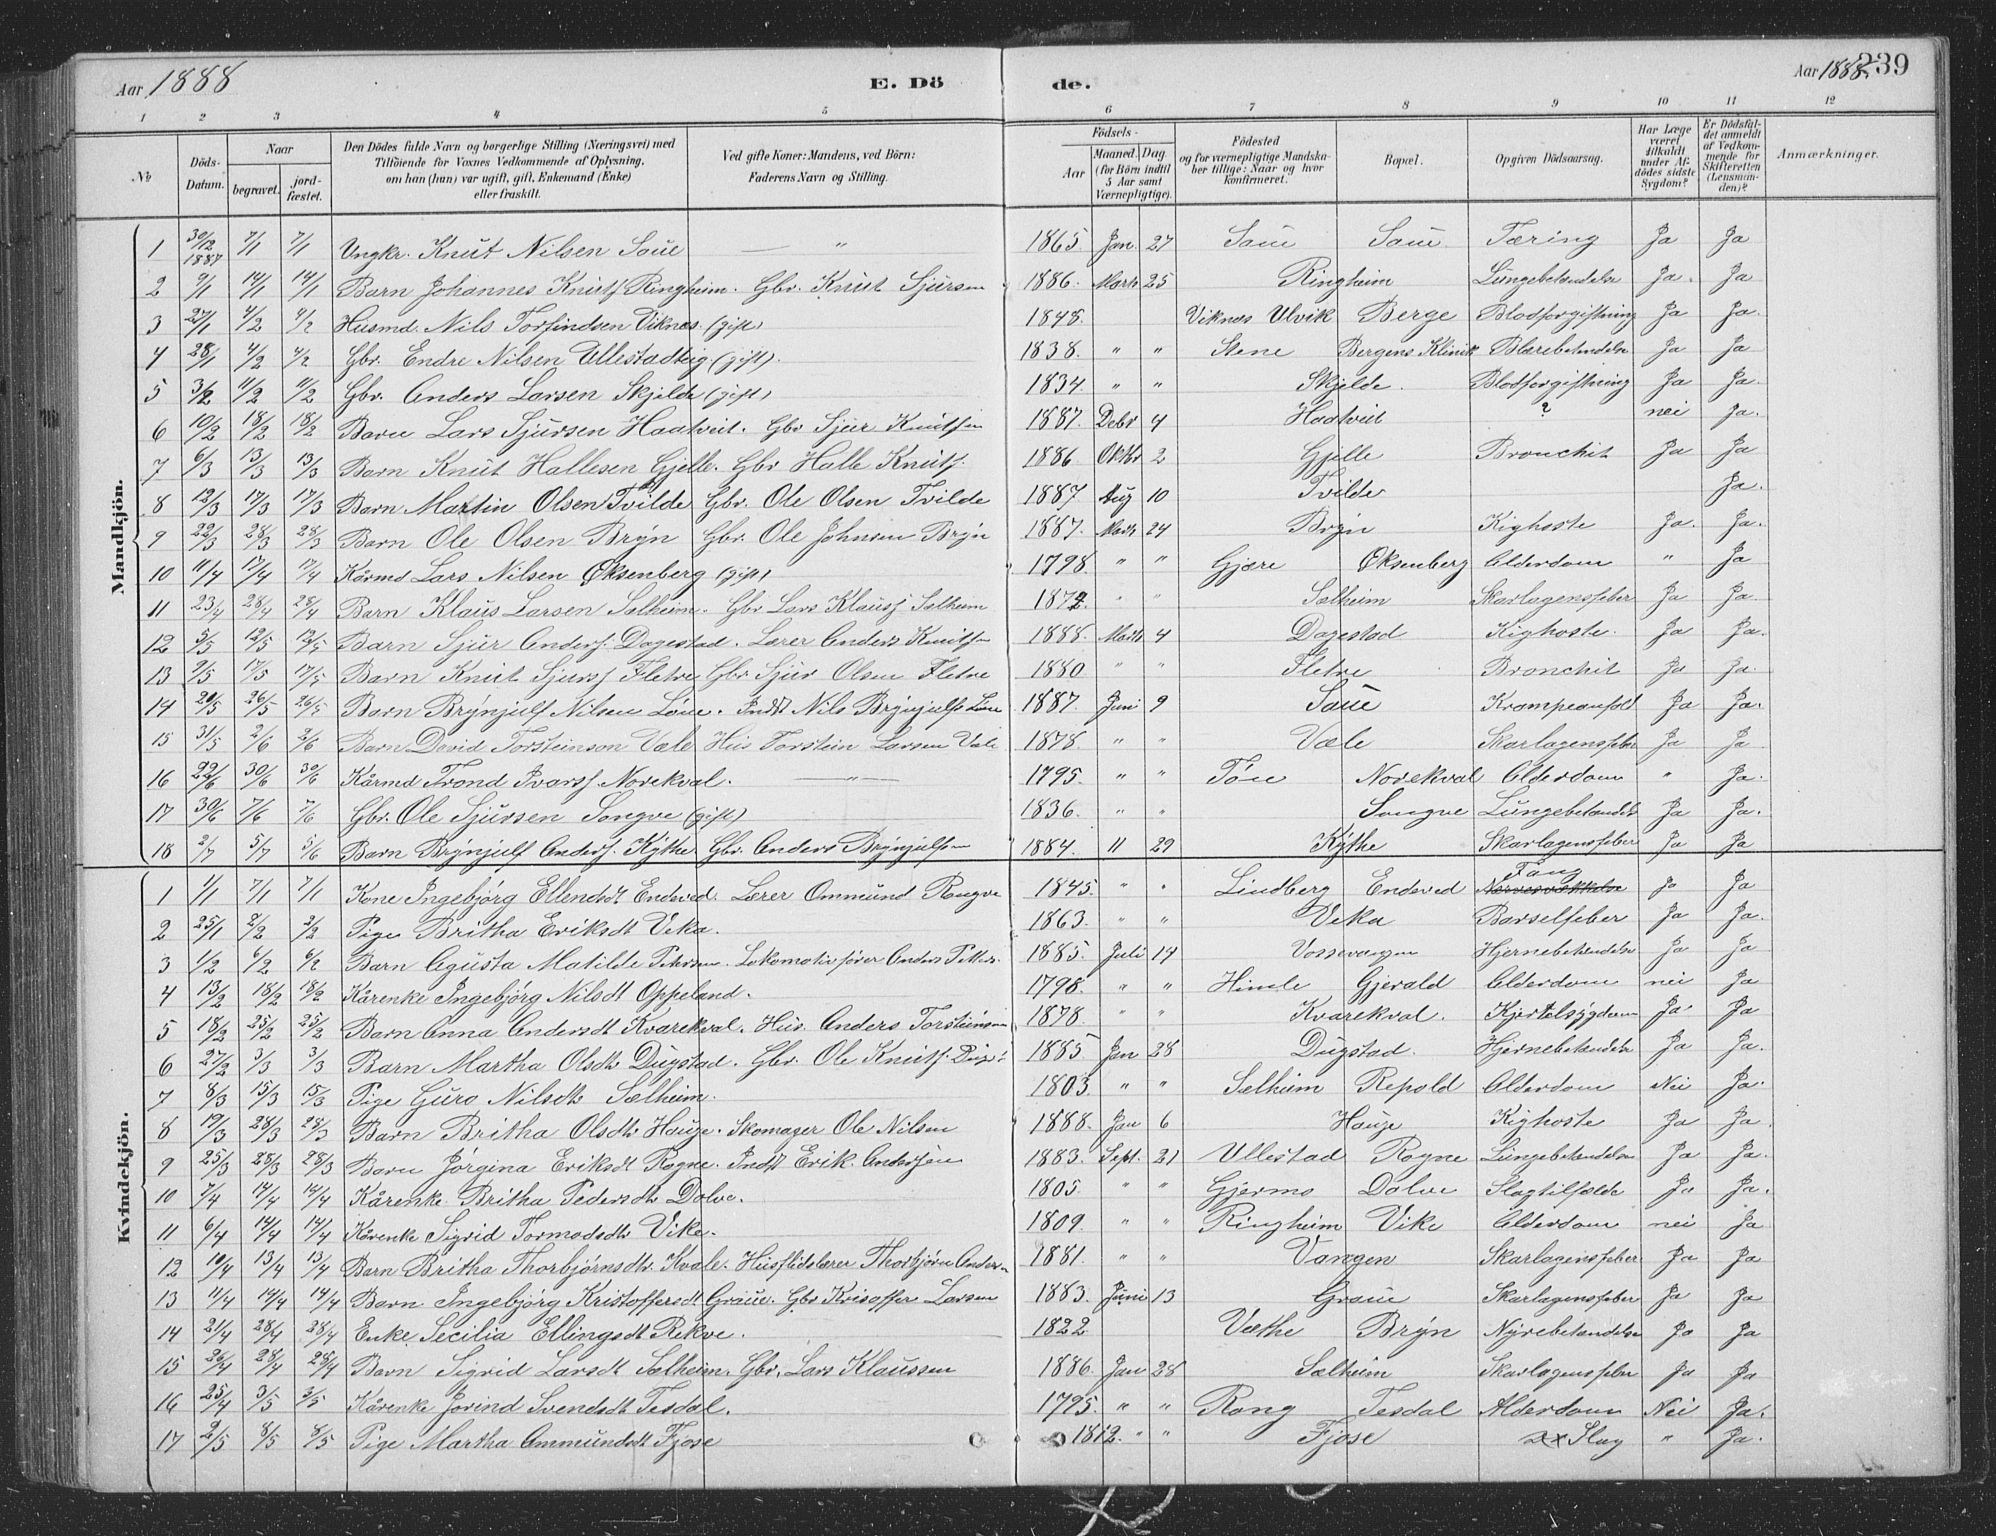 Aar 1888 E. Dö de. Aar 1888. 239
1 2 3 4 5 6 7 8 9 10 11 12
№ Döds-Datum. Naar begravet. jord-fæstet. Den Dödes fulde Navn og borgerlige Stilling (Næringsvei) med Tilföiende for Voxnes Vedkommende af Oplysning, om han (hun) var ugift, gift, Enkemand (Enke) eller fraskilt. Ved gifte Koner: Mandens, ved Börn: Faderens Navn og Stilling. Födsels- Aar Maaned. Dag. (for Börn indtil 5 Aar samt Værnepligtige). Födested og for værnepligtige Mandska-ber tillige: Naar og hvor konfirmeret. Bopæl. Opgiven Dödsaarsag. Har Læge været tilkaldt under Af-dödes sidste Sygdom? Er Dödsfal-det anmeldt af Vedkom-mende for Skifteretten (Lensman-den)? Anmærkninger.
Mandkjön.
1 30/12 1887 7/1 7/1 Ungkr. Knut Nilsen Saue — " 1865 Jan. 27 Saue Saue Tæring Ja Ja
2 9/1 14/1 14/1 Barn Johannes Knuts Ringheim. Gbr. Knut Sjursen 1886. Marts 25 Ringheim Lungebetændelse Ja. Ja
3 27/1 4/2 4/2 Husmd. Nils Torfindsen Viknes. (gift) 1848. Viknes Ulvik Berge Blodforgiftning Ja Ja.
4 28/1 4/2 4/2 Gbr. Endre Nilsen Ullestadteig. (gift). 1838. " " Stene Bergens Klinik Blærebetændelse Ja Ja
5 3/2 11/2 11/2 Gbr. Anders Larsen Skjelde (gift) 1834. " " Skjelde. Blodforgiftning Ja Ja.
6 10/2 18/2 18/2 Barn Lars Sjursen Haatveit. Gbr Sjur Knutsen 1887. Debr 4 Haatveit ? nei Ja.
7 6/3 13/3 13/3 Barn Knut Hallesen Gjelle. Gbr. Halle Knuts. 1886 Oktbr 2 Gjelle Bronchit Ja Ja
8 12/3 17/3 17/3 Barn Martin Olsen Tvilde Gbr. Ole Olsen Tvilde 1887. Aug 10 Tvilde Ja.
9 22/3 28/3 28/3 Barn Ole Olsen Bryn Gbr. Ole Johnsen Bryn 1887. Marts 24 Bryn Kighoste Ja. Ja.
10 11/4 17/4 17/4 Kårmd Lars Nilsen Øksenberg (gift) 1798 " " Gjære Øksenberg Alderdom " Ja
11 23/4 28/4 28/4 Barn Klaus Larsen Sælheim. Gbr Lars Klauss Sælheim 1872. " " Sælheim Skarlagensfeber Ja Ja
12 5/5 12/5 12/5 Barn Sjur Anders. Dagestad. Lærer Anders Knutsen 1888. Marts 4 Dagestad Kighoste. Ja Ja.
13 9/5 17/5 17/5 Barn Knut Sjurss Fletre Gbr Sjur Olsen Fletre 1880 " " Fletre Bronchit Ja Ja.
14 20/5 26/5 26/5 Barn Brynjulf Nilsen Løne. Indst Nils Brynjulfs Løne 1887. Juni 9 Saue Krampeanfald Ja Ja.
15 31/5 2/6 2/6 Barn David Torsteinson Væle Hus Torstein Larsen Væle 1878. " " Væle Skarlagensfeber Ja Ja
16 22/6 30/6 30/6 Kårmd Trond Ivarss Norekval. —"— 1795. " " Tøn Norekval Alderdom " Ja.
17 30/6 7/6 7/6 Gbr. Ole Sjursen Songve (gift) 1836. " " Songve Lungebetændelse Ja Ja.
18 2/7 5/7 5/6 Barn Brynjulf Anders. Kythe Gbr. Anders Brynjulfsen 1884. 11 29 Kythe Skarlagensfeber Ja Ja
Kvindekjön.
1 1/1 7/1 7/1 Kone Ingebjørg Ellensdt Endeved. Lærer Ommund Rongve 1845. " " Lindberg Endeved Nervesvækkelse Ja Ja
2 25/1 2/2 2/2 Pige Britha Eriksdt Veka. 1863. " " Veka Barselfeber Ja Ja.
3 1/2 6/2 6/2 Barn Agusta Matilde Petersen. Lokomotivfører Anders Petters. 1885. Juli 14 Vossevangen Hjernebetændelse Ja Ja
4 13/2 18/2 18/2 Kårenke Ingebjørg Nilsdt Oppeland. 1798. " " Himle Gjerald Alderdom nei Ja
5 18/2 25/2 25/2 Barn Anna Andersdt Kvarekval. Hus. Anders Torsteinsen 1878. " " Kvarekval. Kjertelsygdom Ja. Ja
6 27/2 3/3 3/3 Barn Martha Olsdt Dugstad. Gbr. Ole Knuts. Dugst 1885 Jan 28 Dugstad. Hjernebetændelse Ja Ja.
7 8/3 15/3 15/3 Pige Guro Nilsdt Sælheim. 1803. " " Selheim Repold Alderdom Nei Ja.
8 19/3 28/3 28/3 Barn Britha Olsdt Hauge. Skomager Ole Nilsen 1888. Jan 6 Hauge Kighoste Ja Ja.
9 25/3 28/3 28/3 Barn Jørgina Eriksdt Rogne. Indst Erik. Andersen 1883. Sept. 21 Ullestad Rogne Lungebetændelse Ja Ja.
10 7/4 14/4 14/4 Kårenke Britha Pedersdt Dolve. 1805. " " Gjermo Dolve Slagtilfælde Ja Ja.
11 6/4 14/4 14/4 Kårenke Sigrid Tormodsdt Vike. 1809. " " Ringheim Vike Alderdom nei Ja
12 10/4 13/4 13/4 Barn Britha Thorbjørnsdt. Kvale. Husflidslærer Thorbjørn Andersen 1881. " " Vangen Skarlagensfeber Ja Ja
13 11/4 14/4 14/4 Barn Ingebjørg Kristoffersdt Graue. Gbr Krisoffer Larsen 1883. Juni 13 Graue Skarlagensfeber Ja Ja
14 21/4 28/4 28/4 Enke Secilia Ellingsdt Rekve. 1822 Væthe Bryn Nyrebetændelse Ja Ja
15 26/4 28/4 28/4 Barn Sigrid Larsdt Sælheim. Gbr. Lars Klaussen 1886. Jan 28 Sælheim Skarlagensfeber Ja Ja
16 25/4 3/5 3/5 Kårenke Jorind Svendsdt Tesdal. 1795. " " Rong Tesdal Alderdom Nei Ja.
17 2/5 8/5 8/5 Pige Martha Ommundsdt Fjose 1812. " " Fjose Slag " Ja.